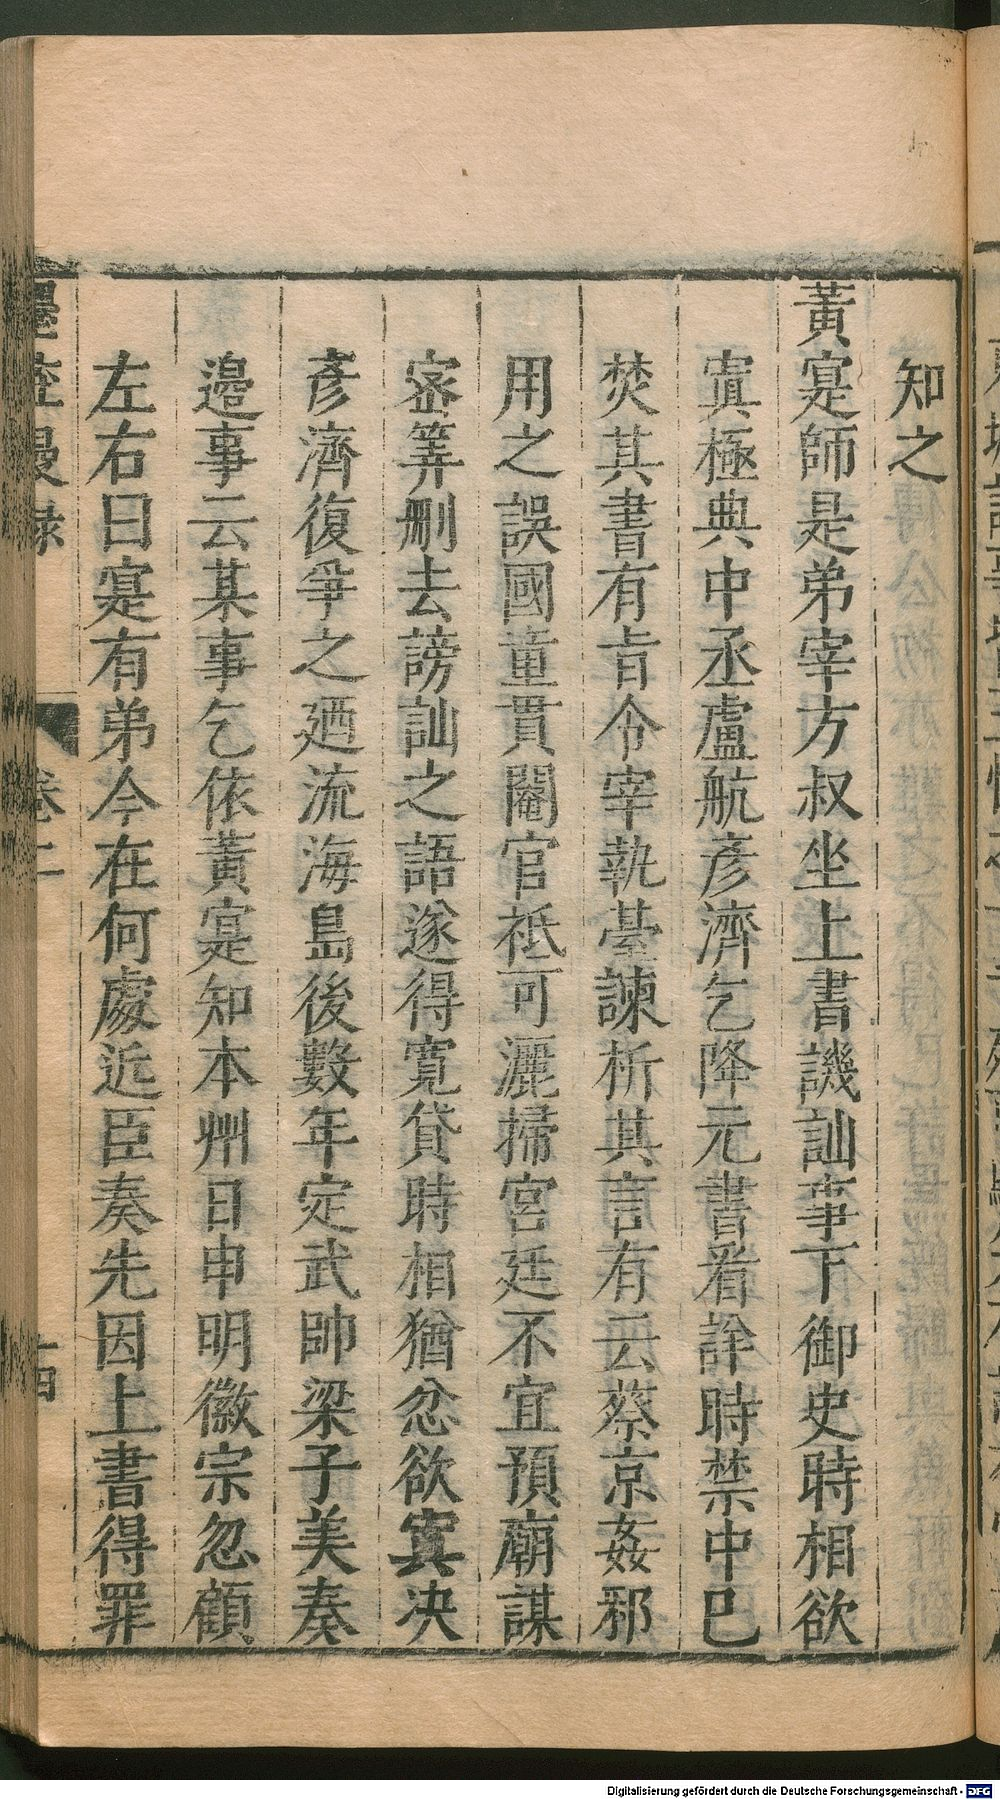 知之
黃寔師是弟宰方叔坐上書譏訕事下御史時相欲
寘極典中丞盧航彥濟乞降元書看詳時禁中已
焚其書有旨令宰執臺諫析其言有云蔡京姦邪
用之誤國童貫閹官祗可灑掃宮廷不宜預廟謀
宻筭刪去謗訕之語遂得寬貸時相猶忿欲寘决
彥濟復爭之廼流海島後數年定武帥梁子美奏
邉事云某事乞依黃寔知本州日申明徽宗忽顧
左右曰寔有弟今在何處近臣奏先因上書得罪
墨莊漫錄 卷二 十四
Digitalisierung gefördert durch die Deutsche Forschungsgemeinschaft - DFG